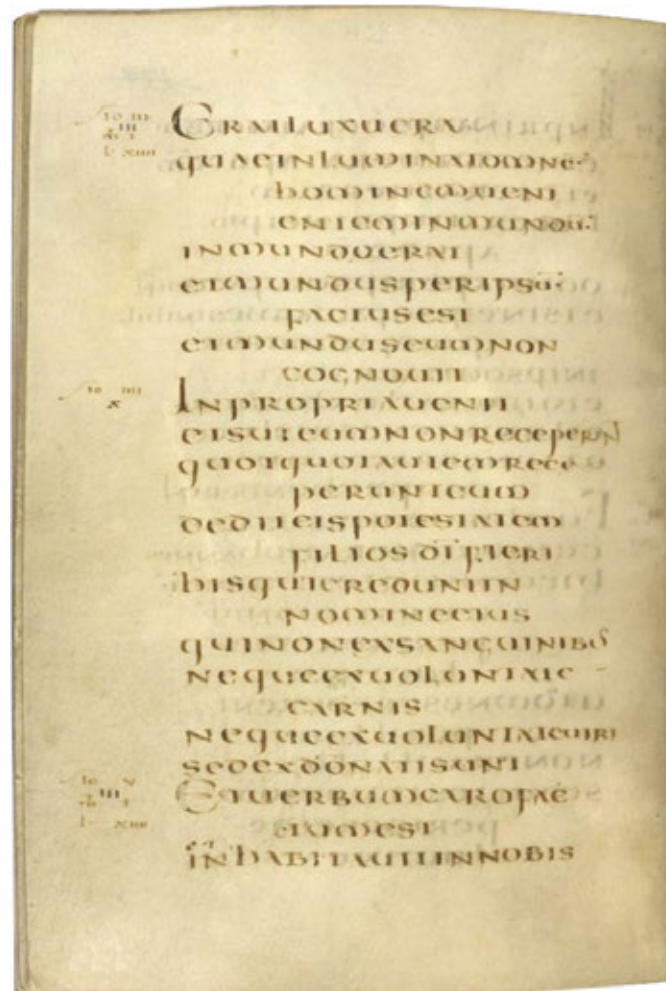 ERATLUXUERA
QUAEINLUMINATOMNE
HOMINEMUENI
ENTEMINMUNDU
INMUNDOERAT
ETMUNDUSPERIPSU
FACTUSEST
ETMUNDUSEUMNON
COGNOUIT
INPROPRIAUENIT
ETSUIEUMNONRECEPERUN
QUOTQUOTAUTEMRECE
PERUNTEUM
DEDITEISPOTESTATEM
FILIOSDIFIERI
HISQUICREDUNTIN
NOMINEEIUS
QUINONEXSANGUINIB
NEQUEEXUOLONTATE
CARNIS
NEQUEEXUOLUNTATEUIRI
SEDEXDONATISUNT
ETUERBUMCAROFAC
TUMEST
INHABITAUITINNOBIS